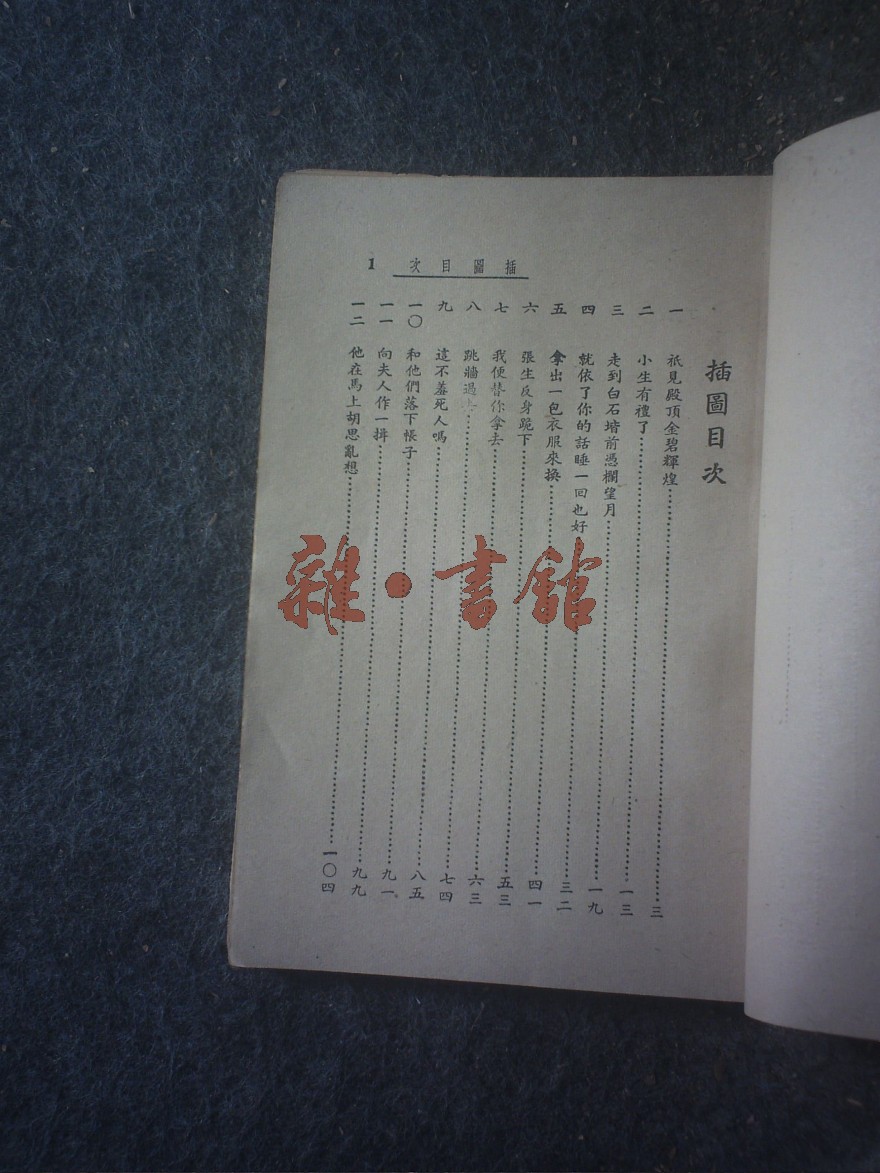 插圖目次 1
插圖目次
一 祇見殿頂金碧輝煌……三
二 小生有禮了……一三
三 走到白石堦前憑欄望月……一九
四 就依了你的話睡一回也好……三二
五 拿出一包衣服來換……四一
六 張生反身跪下……五三
七 我便替你拿去……六三
八 跳牆過……七四
九 這不羞死人嗎……八五
一〇 和他們落下帳子……九一
一一 向夫人作一揖……九九
一二 他在馬上胡思亂想……一〇四
雜·書館